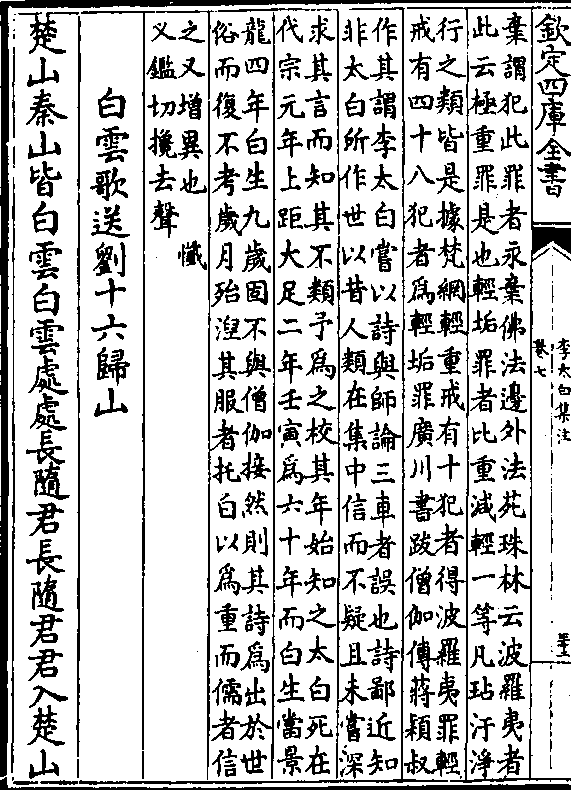 欽定四庫全書
李太白集注
卷七
棄謂犯此罪者永棄佛法邊外法苑珠林云波羅夷者
此云極重罪是也輕垢罪者比重減輕一等凡玷汙淨
行之類皆是據梵網輕重戒有十犯者得波羅夷罪輕
戒有四十八犯者爲輕垢罪廣川書跋僧伽傳蔣穎叔
作其謂李太白嘗以詩與師論三車者誤也詩鄙近知
非太白所作世以昔人類在集中信而不疑且未嘗深
求其言而知其不類予爲之校其年始知之太白死在
代宗元年上距大足二年壬寅爲六十年而白生當景
龍四年白生九歲固不與僧伽接然則其詩爲出於世
俗而復不考歲月殆涅其服者托白以爲重而儒者信
之又增異也 懺
叉鑑切攙去聲
白雲歌送劉十六歸山
楚山秦山皆白雲白雲處處長隨君長隨君君入楚山